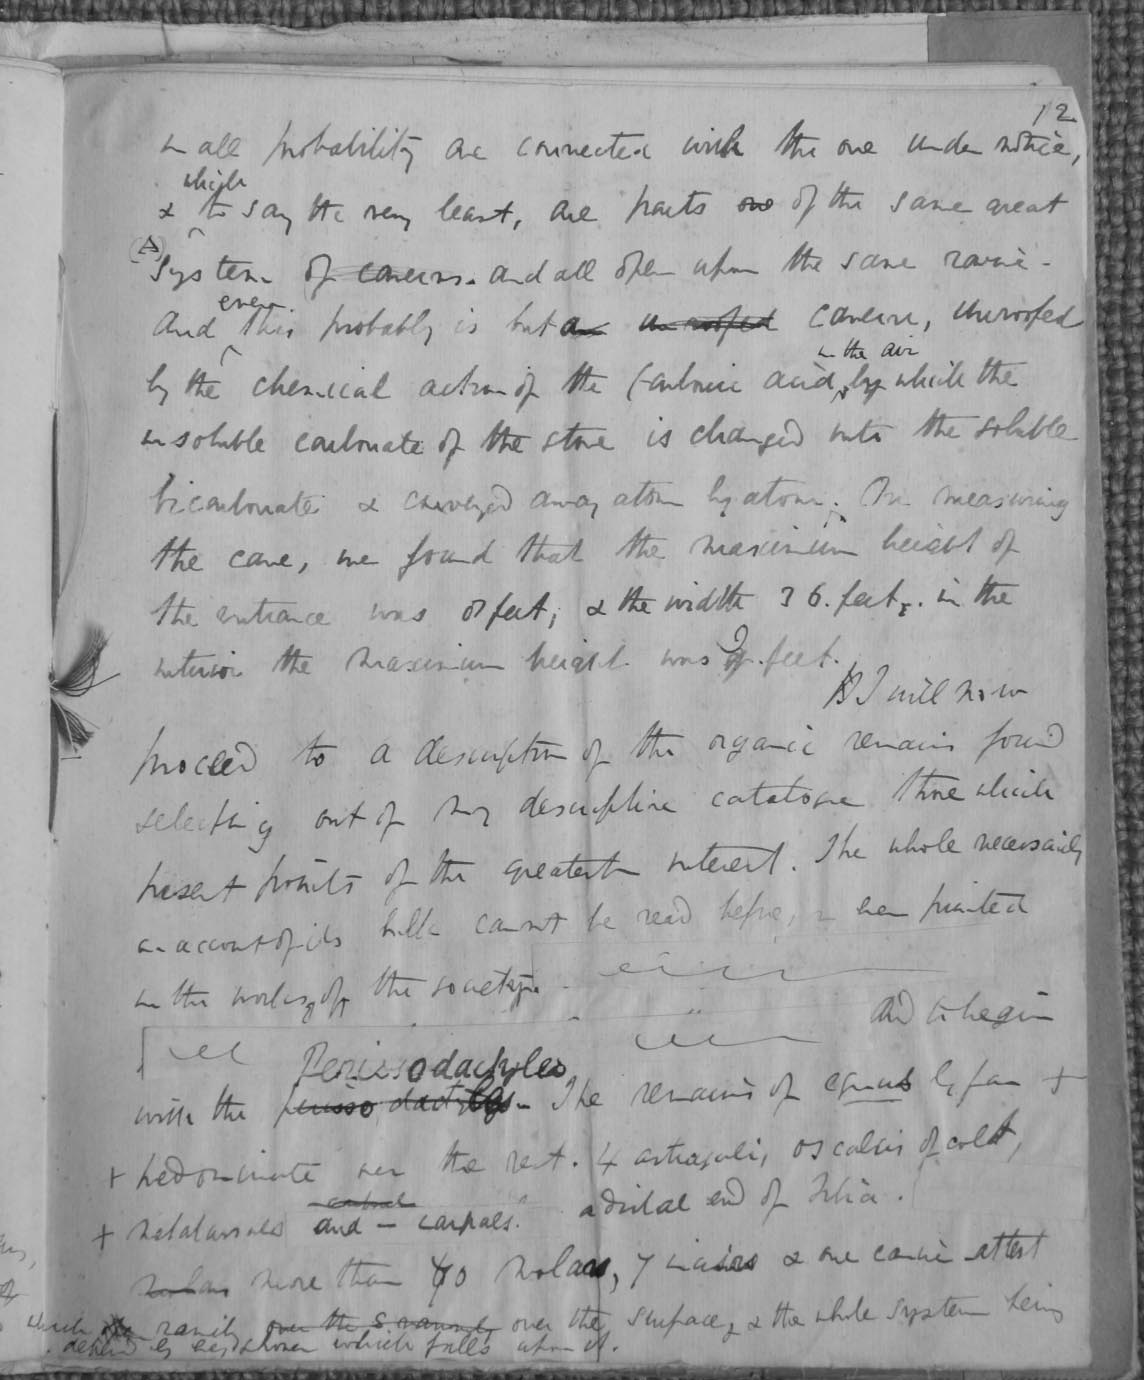 12
in all probability are connected with the one under notice,
which
& to say the very least, are parts of the same great
(A)
System of caverns. and all open upon the same ravine.
even
And this probably is but an unroofed cavern, unroofed
in the air
by the chemical action of the Carbonic acid, by which the
insoluble carbonate of the stone is changed into the soluble
bicarbonate & conveyed away atom by atom. On measuring
the cave, we found that the maximum height of
the entrance was feet, & the width 36. feet. in the
interior the maximum height was 9. feet.
I will now
proceed to a description of the organic remains found
selecting out of my descriptive catalogue those which
present points of the greatest interest. The whole necessarily
on account of its bulk cannot be read before, or even printed
in the works of the society.
And to begin
Perissodactyles
with the perissodactyles. The remains of equus by far +
+ predominate over the rest. 4 astragali, os calcis of colt,
+ metatarsals and - carpals. a distal end of tibia.
molars more than 40 molars, 7 incisors & one canine attest
which ramify over the S ramify over the surface, & the whole system being
which falls upon it.